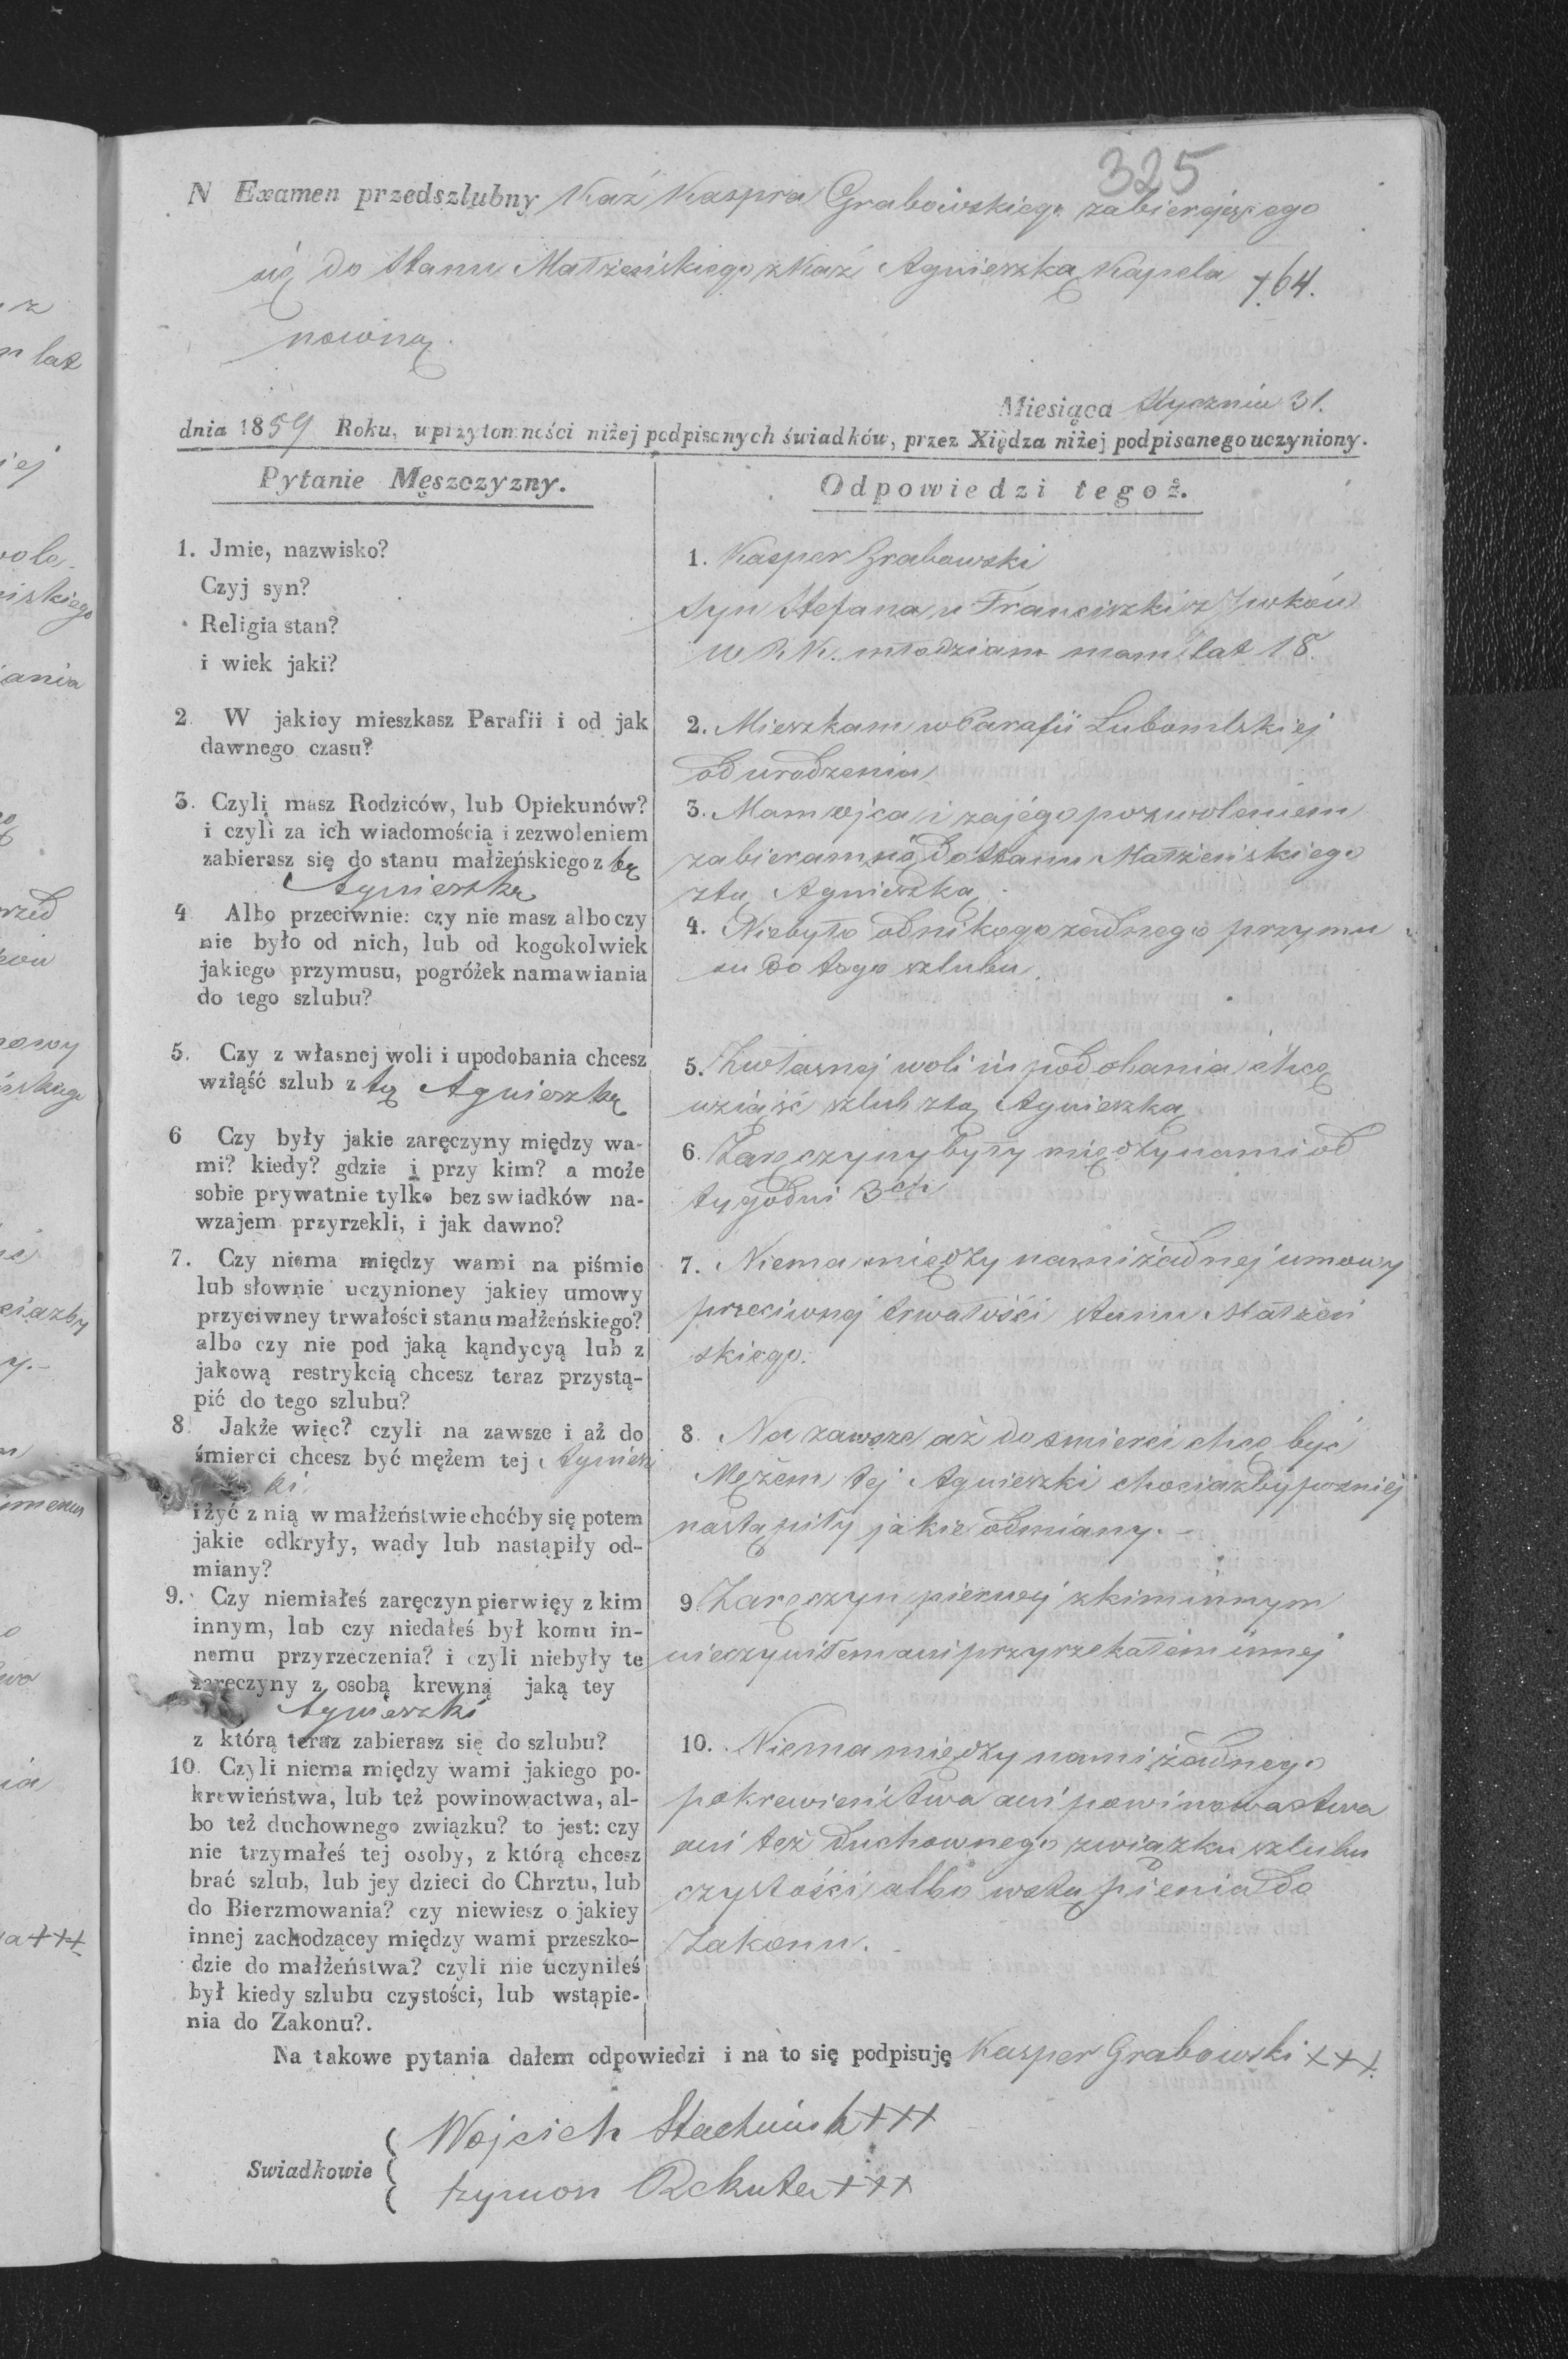 325
N Examen przedszlubny Kaź Kaspra Grabowskiego zabierającego
się do Stanu Małżeńskiego z Kaź Agnieszką Kapela
nowną.
164.
Miesiąca Stycznia 31.
dnia 1859 Roku, w przytomności niżej podpisanych świadków, przez Xiędza niżej podpisanego uczyniony.
Pytanie Męszczyzny.
1. Jmie, nazwisko?
Czyj syn?
Religia stan?
i wiek jaki?
2. W jakiey mieszkasz Parafii i od jak
dawnego czasu?
3. Czyli masz Rodziców, lub Opiekunów?
i czyli za ich wiadomością i zezwoleniem
zabierasz się do stanu małżeńskiego z tą
Agnieszką
4 Albo przeciwnie: czy nie masz albo czy
nie było od nich, lub od kogokolwiek
jakiego przymusu, pogróżek namawiania
do tego szlubu?
5. Czy z własnej woli i upodobania chcesz
wziąść szlub z tą Agnieszką
6 Czy były jakie zaręczyny między wa-
mi? kiedy? gdzie i przy kim? a może
sobie prywatnie tylko bez swiadków na-
wzajem przyrzekli, i jak dawno?
7. Czy niema między wami na piśmie
lub słownie uczynioney jakiey umowy
przyciwney trwałości stanu małżeńskiego?
albo czy nie pod jaką kąndycyą lub z
jakową restrykcią chcesz teraz przystą-
pić do tego szlubu?
8. Jakże więc? czyli na zawsze i aż do
śmierci chcesz być mężem tej Agniesz
ki
i żyć z nią w małżeństwie choćby się potem
jakie odkryły, wady lub nastąpiły od-
miany?
9. Czy niemiałeś zaręczyn pierwięy z kim
innym, lub czy niedałeś był komu in-
nemu przyrzeczenia? i czyli niebyły te
zaręczyny z osobą krewną jaką tey
Agnieszki
z którą teraz zabierasz się do szlubu?
10. Czyli niema między wami jakiego po-
krewieństwa, lub też powinowactwa, al-
bo też duchownego związku? to jest: czy
nie trzymałeś tej osoby, z którą chcesz
brać szlub, lub jey dzieci do Chrztu, lub
do Bierzmowania? czy niewiesz o jakiey
innej zachodzącey między wami przeszko-
dzie do małżeństwa? czyli nie uczyniłeś
był kiedy szlubu czystości, lub wstąpie-
nia do Zakonu?.
Odpowiedzi tegoż.
1. Kasper Grabowski
Syn Stefana u Franciszki z
W R K. młodzian mam lat 18.
2. Mieszkam w Parafii Lubomlskiej
od urodzenia
3. Mam ojca i za jego pozwoleniem
zabieram się do Stanu Małżeńskiego
z tą Agnieszką
4. Niebyło od nikogo żadnego przymu
su do tego szlubu.
5. Z własnej woli i upodobania chcę
wziąść szlub z tą Agnieszką
6. Zaręczyny były między nami od
tygodni 3ch
7. Niema między nami żadnej umowy
przeciwnej trwałości stanu Małżeń
skiego.
8. Na zawsze aż do smierci chcę być
Mężem tej Agnieszki chociażby pozniej
nastąpiły jakie odmiany. -
9 Zaręczyn pierwej z kim innym
nieczyniłem ani przyrzekałem innej
10. Niema między nami żadnego
pokrewieństwa ani powinowactwa
ani też duchownego związku szlubu
czystości albo wstąpienia do
Zakonu. -
Na takowe pytania dałem odpowiedzi i na to się podpisuję Kasper Grabowski +++.
Swiadkowie
Wojcich +++
Szymon +++